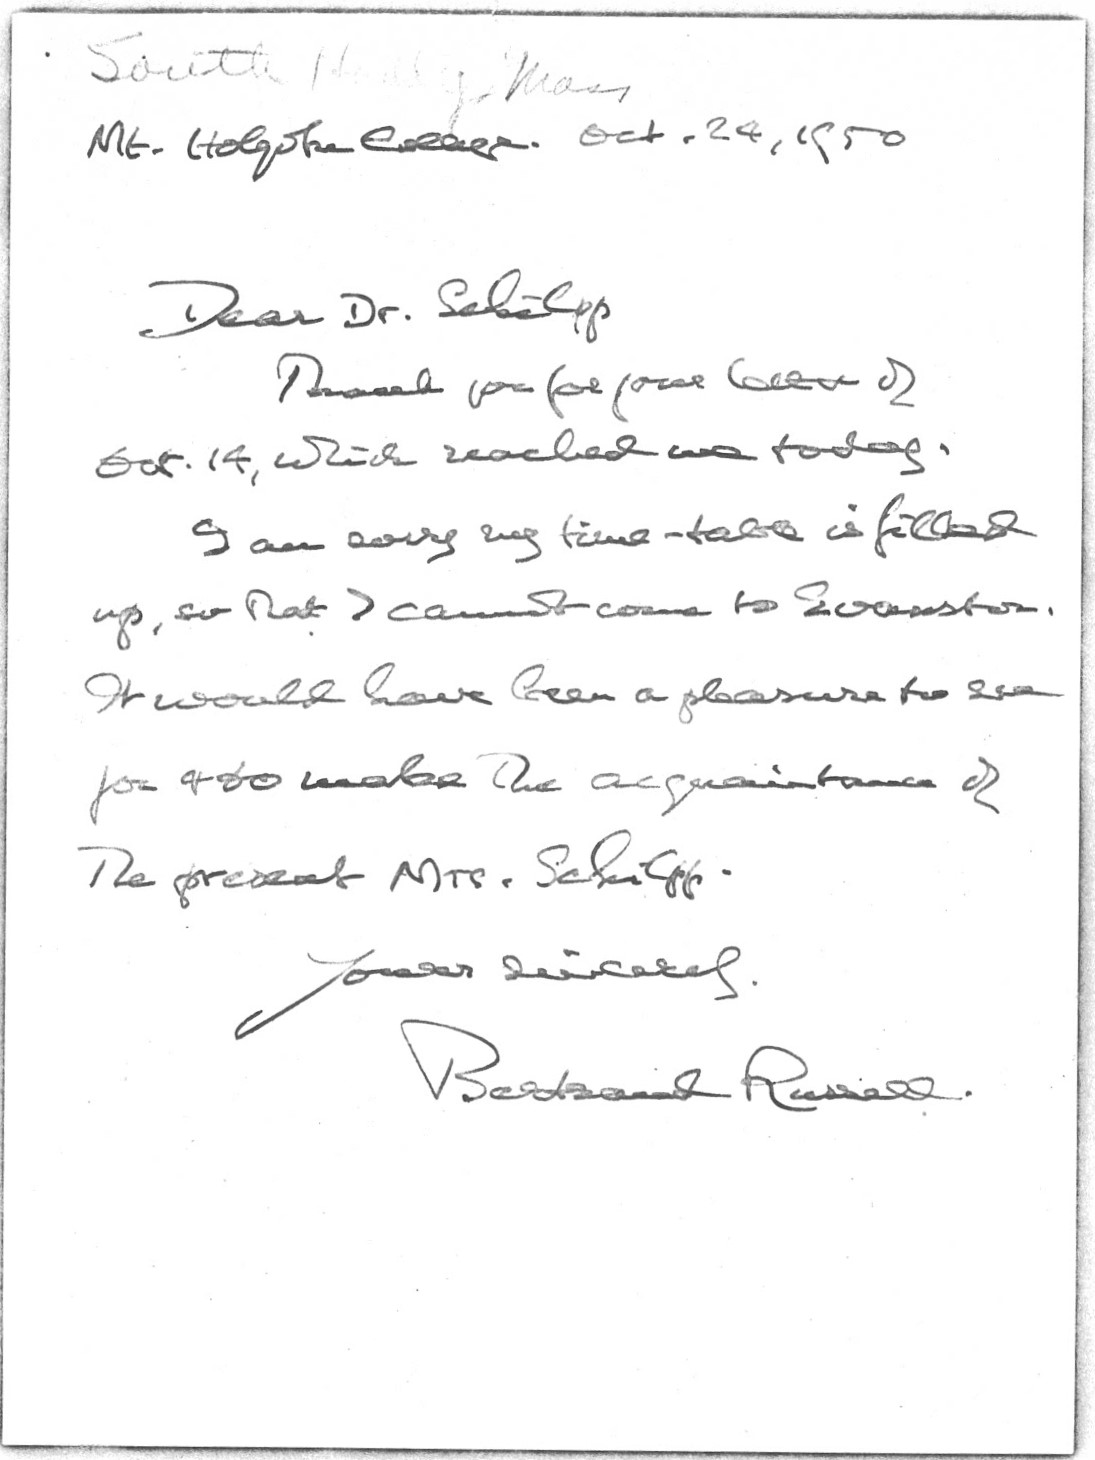 South Hadley, Mass
Mt. Holyoke College. Oct. 24, 1950
Dear Dr. Schilpp
Thank you for your letter of
Oct. 14, which reached me today.
I am sorry my time-table is filled
up, so that I cannot come to Evanston.
It would have been a pleasure to see
you & to make the acquaintance of
the present Mrs. Schilpp.
Yours sincerely.
Bertrand Russell.